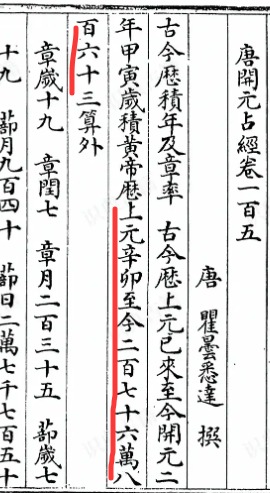 唐開元占經卷一百五
唐 瞿曇悉達 撰
古今厯積年及章率 古今厯上元已來至今開元二
年甲寅歲積黃帝厯上元辛卯至今二百七十六萬八
百六十三算外
章嵗十九 章閏七 章月二百三十五 蔀嵗七
十九 蔀月九百四十 蔀日二萬七千七百五十